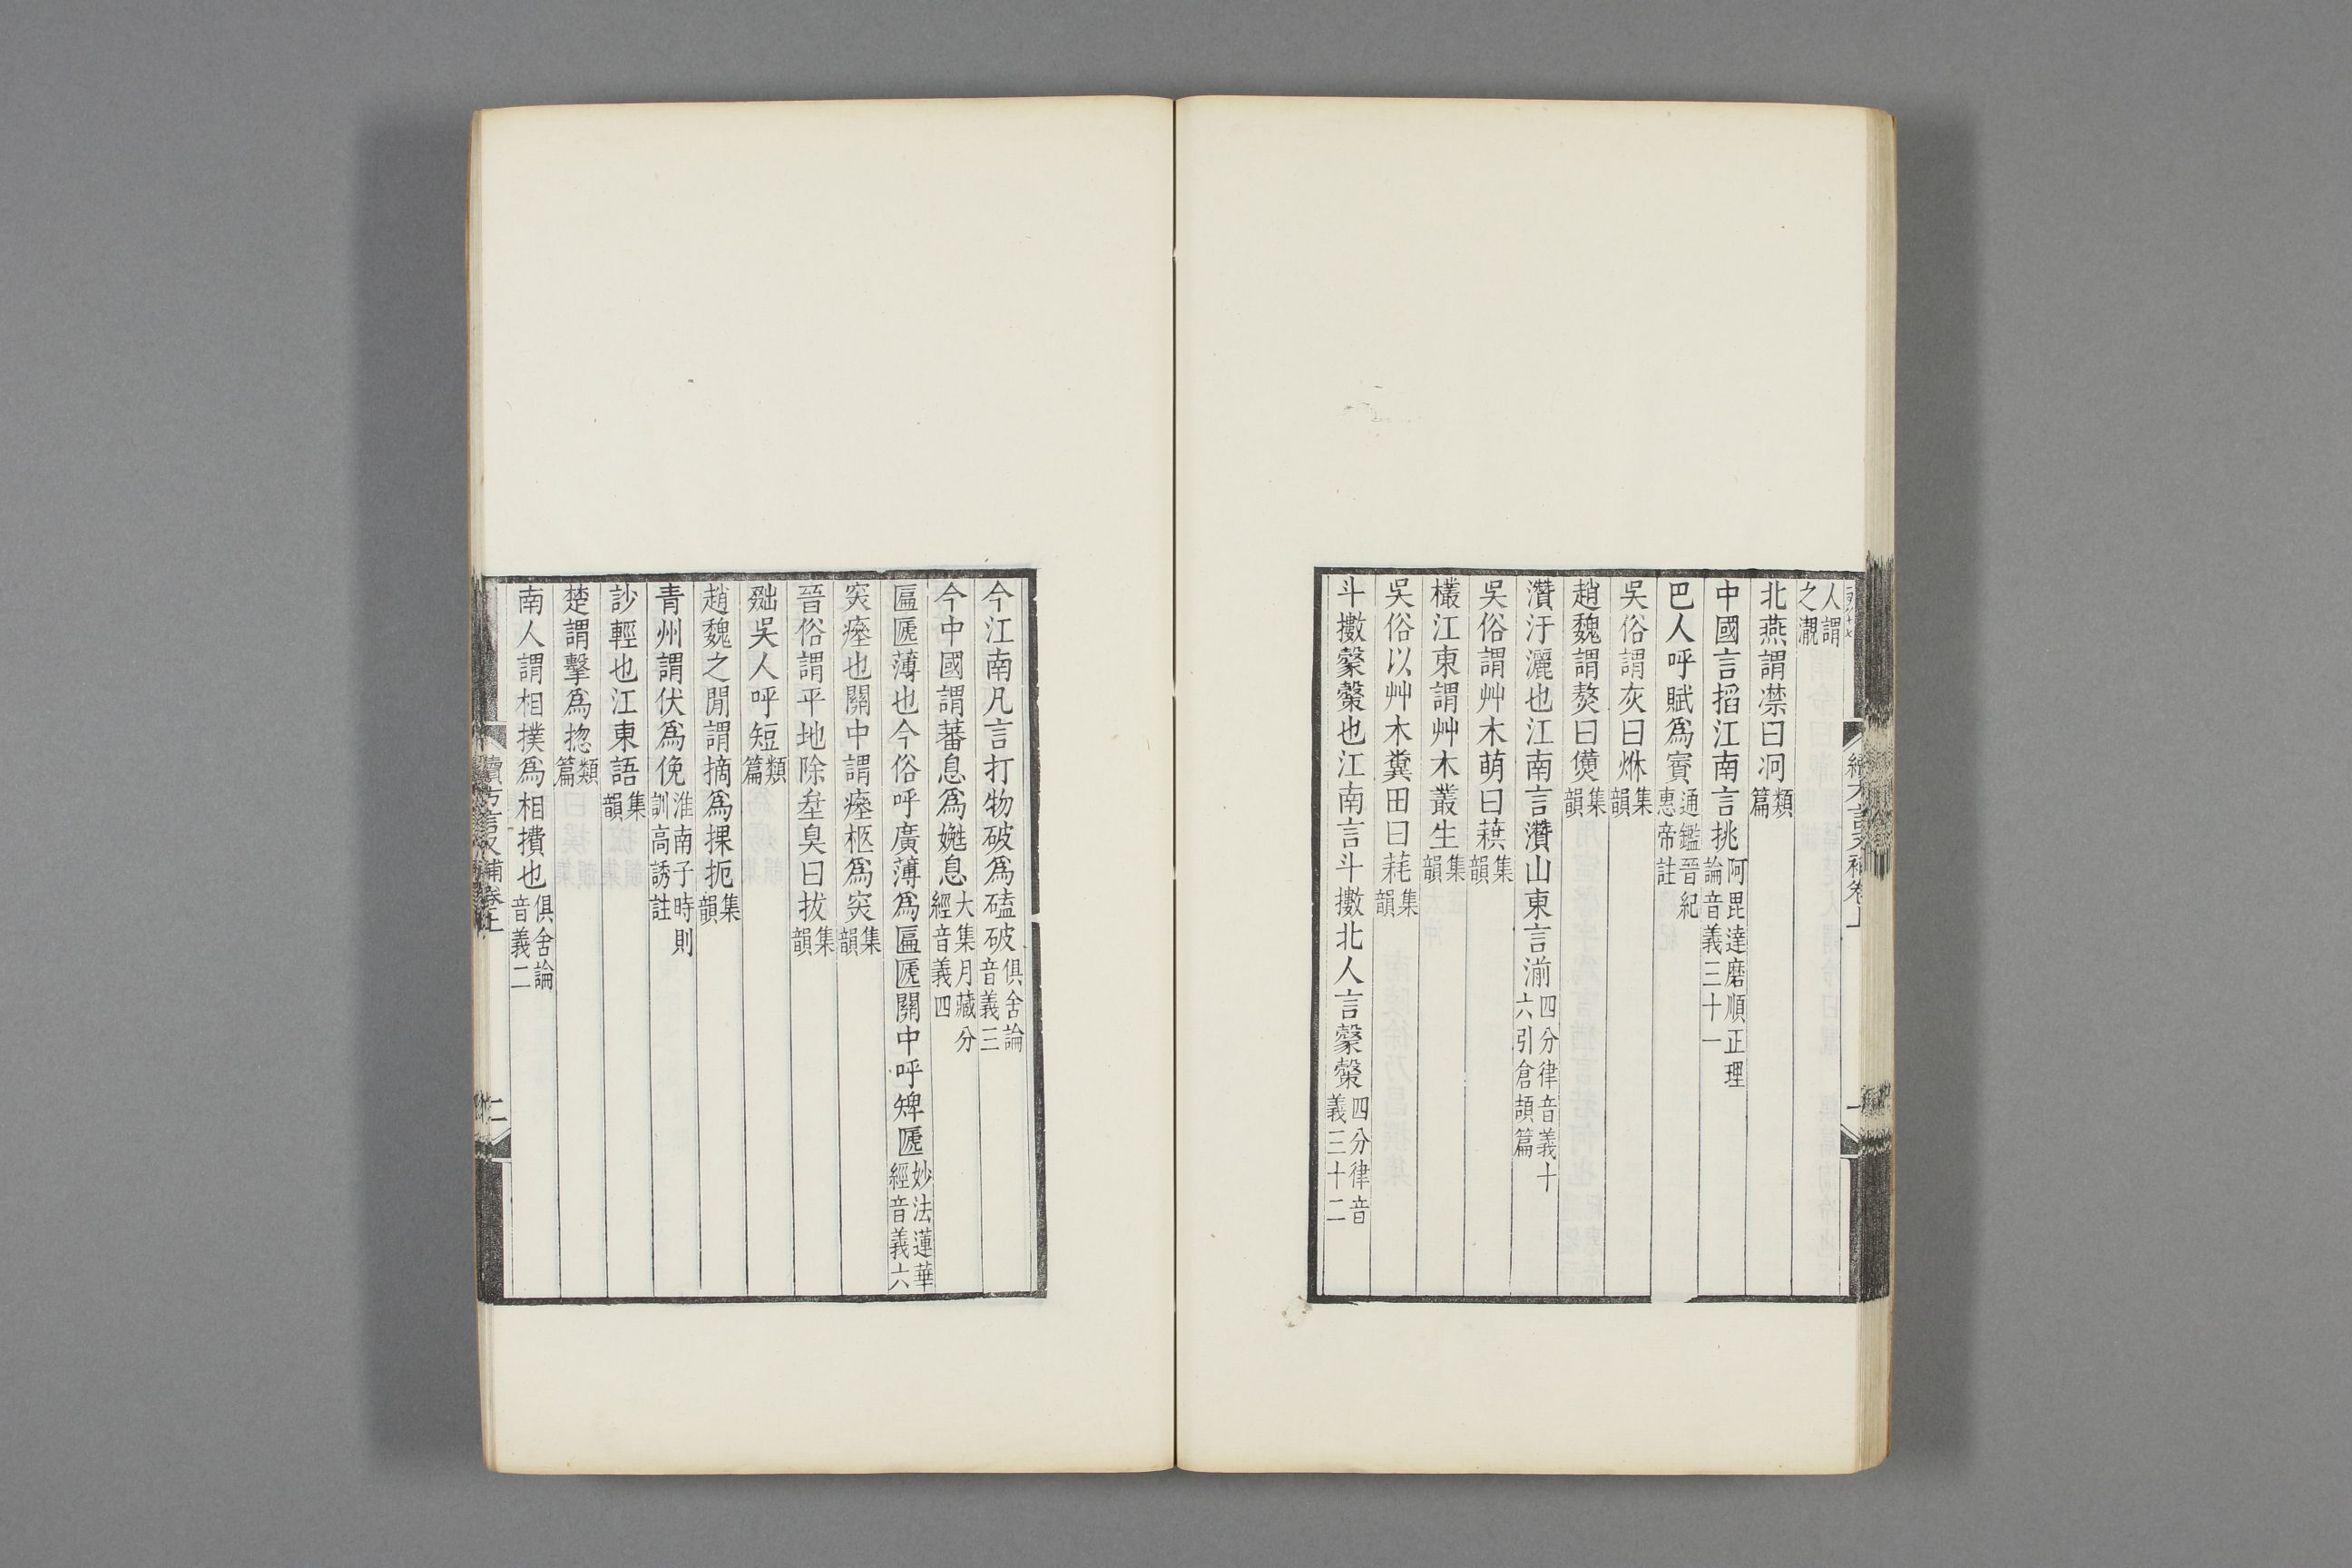 人謂之瀙
北燕謂凚曰泂類篇
中國言搯江南言挑阿毘達磨順正理論音義三十一
巴人呼賦爲賨通鑑晉紀惠帝註
吳俗謂灰曰烌集韻
趙魏謂熬曰㷶集韻
灒汙灑也江南言灒山東言湔四分律音義十六引倉頡篇
吳俗謂艸木萌曰蕻集韻
欉江東謂艸木叢生集韻
吳俗以艸木糞田曰集韻
斗擻也江南言斗擻北人言四分律音義三十二
續方言又補卷上
一
今江南凡言打物破爲磕破俱舍論音義三
今中國謂蕃息爲嬎息大集月藏分經音義四
匾㔸薄也今俗呼廣薄爲匾㔸關中呼㽡㔸妙法蓮華經音義六
穾瘞也關中謂瘞柩爲穾集韻
晉俗謂平地除垒臭曰拔集韻
䂐吳人呼短類篇
趙魏之閒謂摘爲捰扼集韻
青州謂伏爲俛淮南子時則訓高誘註
訬輕也江東語集韻
楚謂擊爲揔類篇
南人謂相撲爲相㩌也俱舍論音義二
續方言又補卷上
二